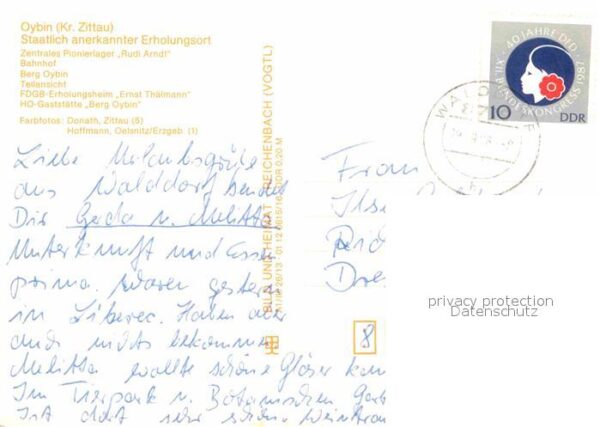 Oybin (Kr. Zittau)
Staatlich anerkannter Erholungsort
Zentrales Pionierlager „Rudi Arndt"
Bahnhof
Berg Oybin
Teilansicht
FDGB-Erholungsheim „Ernst Thälmann"
HO-Gaststätte „Berg Oybin"
Farbfotos: Donath, Zittau (5)
Hoffmann, Oelsnitz/Erzgeb (1)
Liebe Urlaubsgrüße
aus Walddorf sendet
Dir Gerda u. Melitta
Unterkunft und Essen
prima. Waren gestern
in Liberec. Haben aber
auch nichts bekommen
Melitta wollte schöne Gläser
Im Tierpark u. Botanischen
Ist dort sehr schön.
BILD UND HEIMAT REICHENBACH (VOGTL)
XII. BUNDESKONGRESS 1987
40 JAHRE DFD
10 DDR
Frau
Ilse
Dre
8
privacy protection
Datenschutz